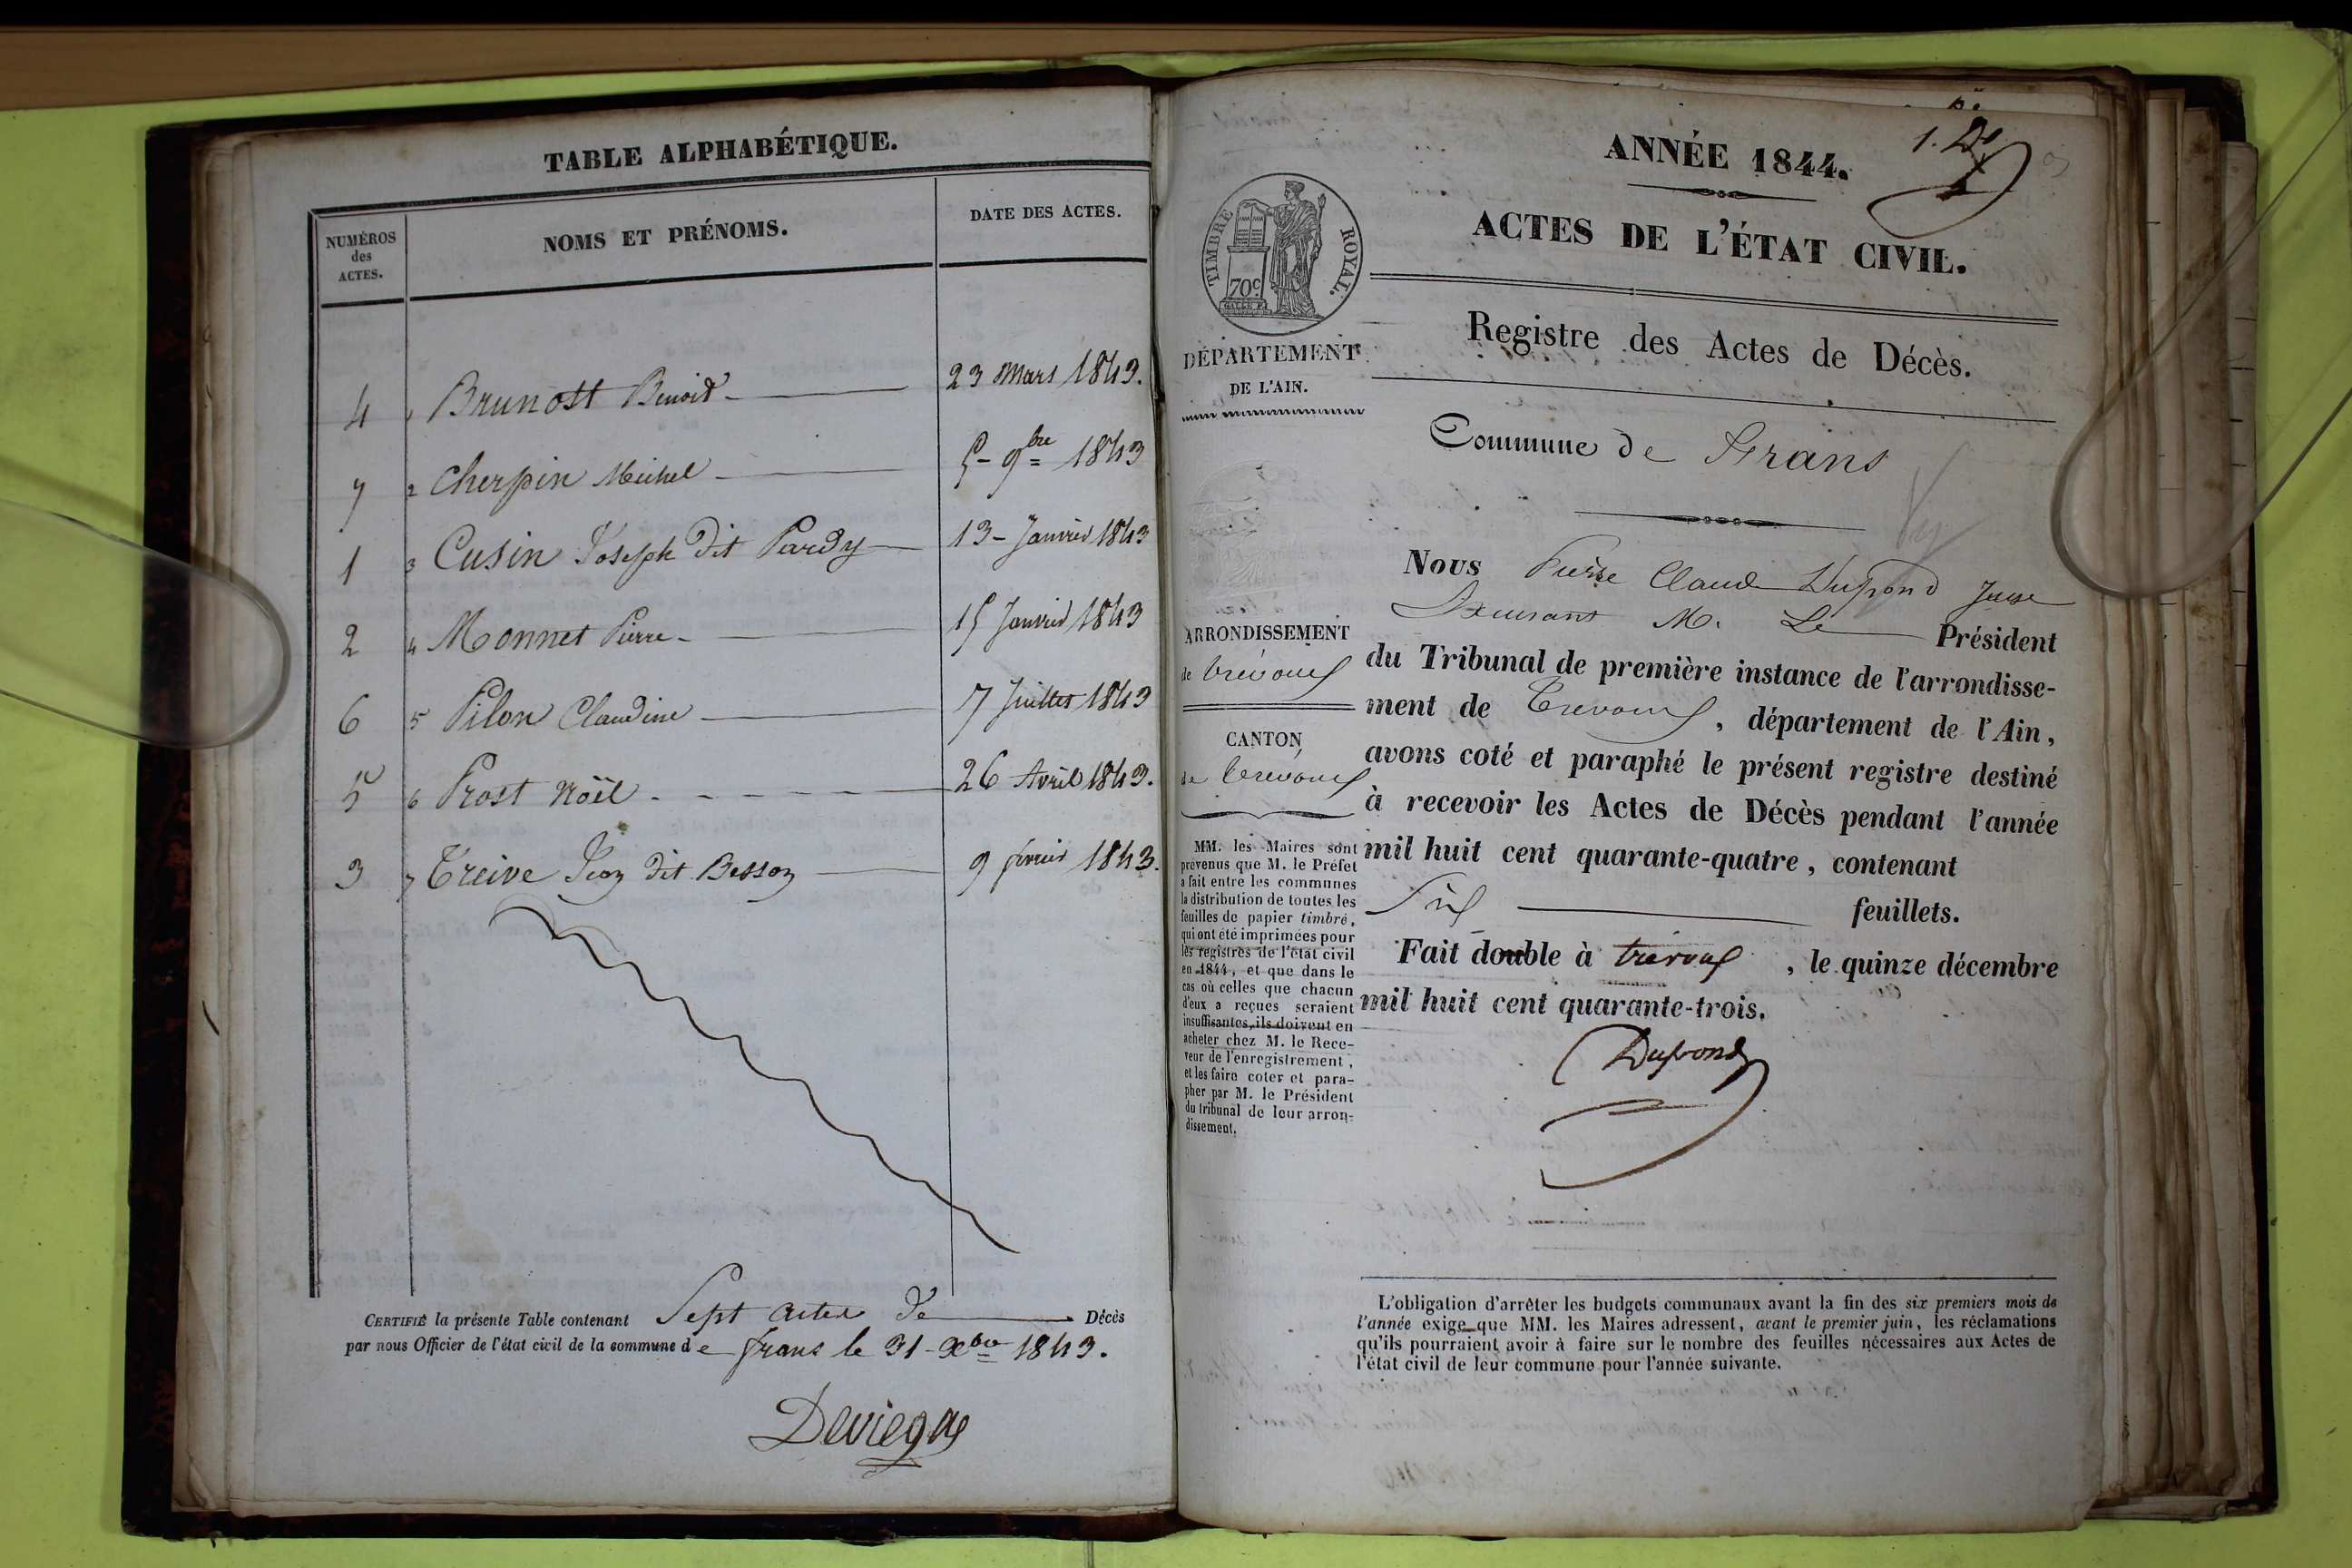 TABLE ALPHABÉTIQUE.
NUMÉROS des ACTES.
NOMS ET PRÉNOMS.
DATE DES ACTES.
4 1 Brunost Benoit 23 Mars 1843.
7 2 Cherpin Michel 5 - 9bre 1843
1 3 Cusin Joseph dit Pardy 13 - Janvier 1843
2 4 Monnet Pierre - 15 Janvier 1843
6 5 Pilon Claudine 7 Juillet 1843
5 6 Prost Noël 26 Avril 1843.
3 7 Treive Jean dit Besson 9 février 1843.
CERTIFIÉ la présente Table contenant Sept actes de Décès
par nous Officier de l'état civil de la commune de frans le 31 - Xbre 1843.
ANNÉE 1844.
ACTES DE L'ÉTAT CIVIL.
TIMBRE ROYAL.
70c
Registre des Actes de Décès.
DÉPARTEMENT
DE L'AIN.
Commune de Frans
ARRONDISSEMENT
de trévoux
CANTON
de trévoux
MM. les Maires sont
prévenus que M. le Préfet
a fait entre les communes
la distribution de toutes les
feuilles de papier timbré,
qui ont été imprimées pour
les registres de l'état civil
en 1844, et que dans le
cas où celles que chacun
d'eux a reçues seraient
insuffisantes, ils doivent en
acheter chez M. le Rece-
veur de l'enregistrement,
et les faire coter et para-
pher par M. le Président
du tribunal de leur arron-
dissement.
Nous Pierre Claude Dupond Juge
M. Le Président
du Tribunal de première instance de l'arrondisse-
ment de Trevoux, département de l'Ain,
avons coté et paraphé le présent registre destiné
à recevoir les Actes de Décès pendant l'année
mil huit cent quarante-quatre, contenant
Six feuillets.
Fait double à trevoux, le quinze décembre
mil huit cent quarante-trois.
Dupond
L'obligation d'arrêter les budgets communaux avant la fin des six premiers mois de
l'année exige que MM. les Maires adressent, avant le premier juin, les réclamations
qu'ils pourraient avoir à faire sur le nombre des feuilles nécessaires aux Actes de
l'état civil de leur commune pour l'année suivante.